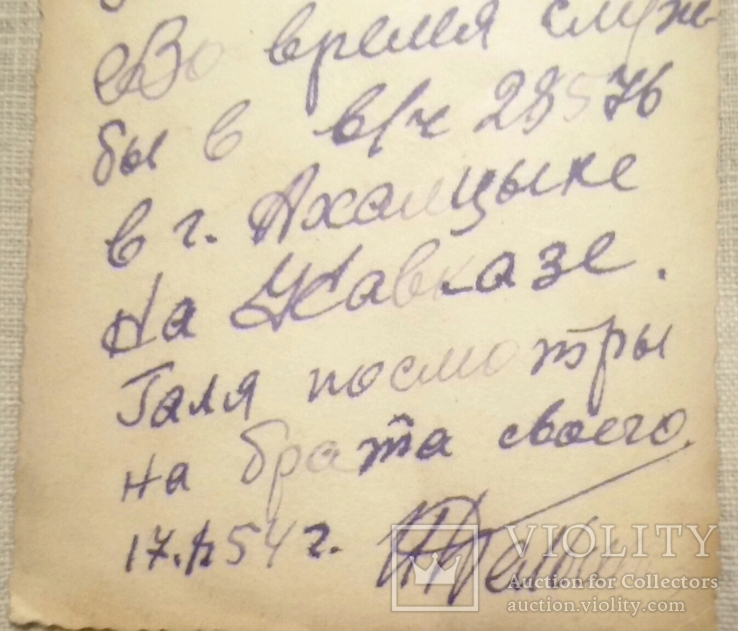 Во время служ-
бы в в/ч 28576
в г. Ахалцыке
на Кавказе.
Галя посмотры
на брата своего.
54 г.
VIOLITY
Auction for Collectors
auction.violity.com